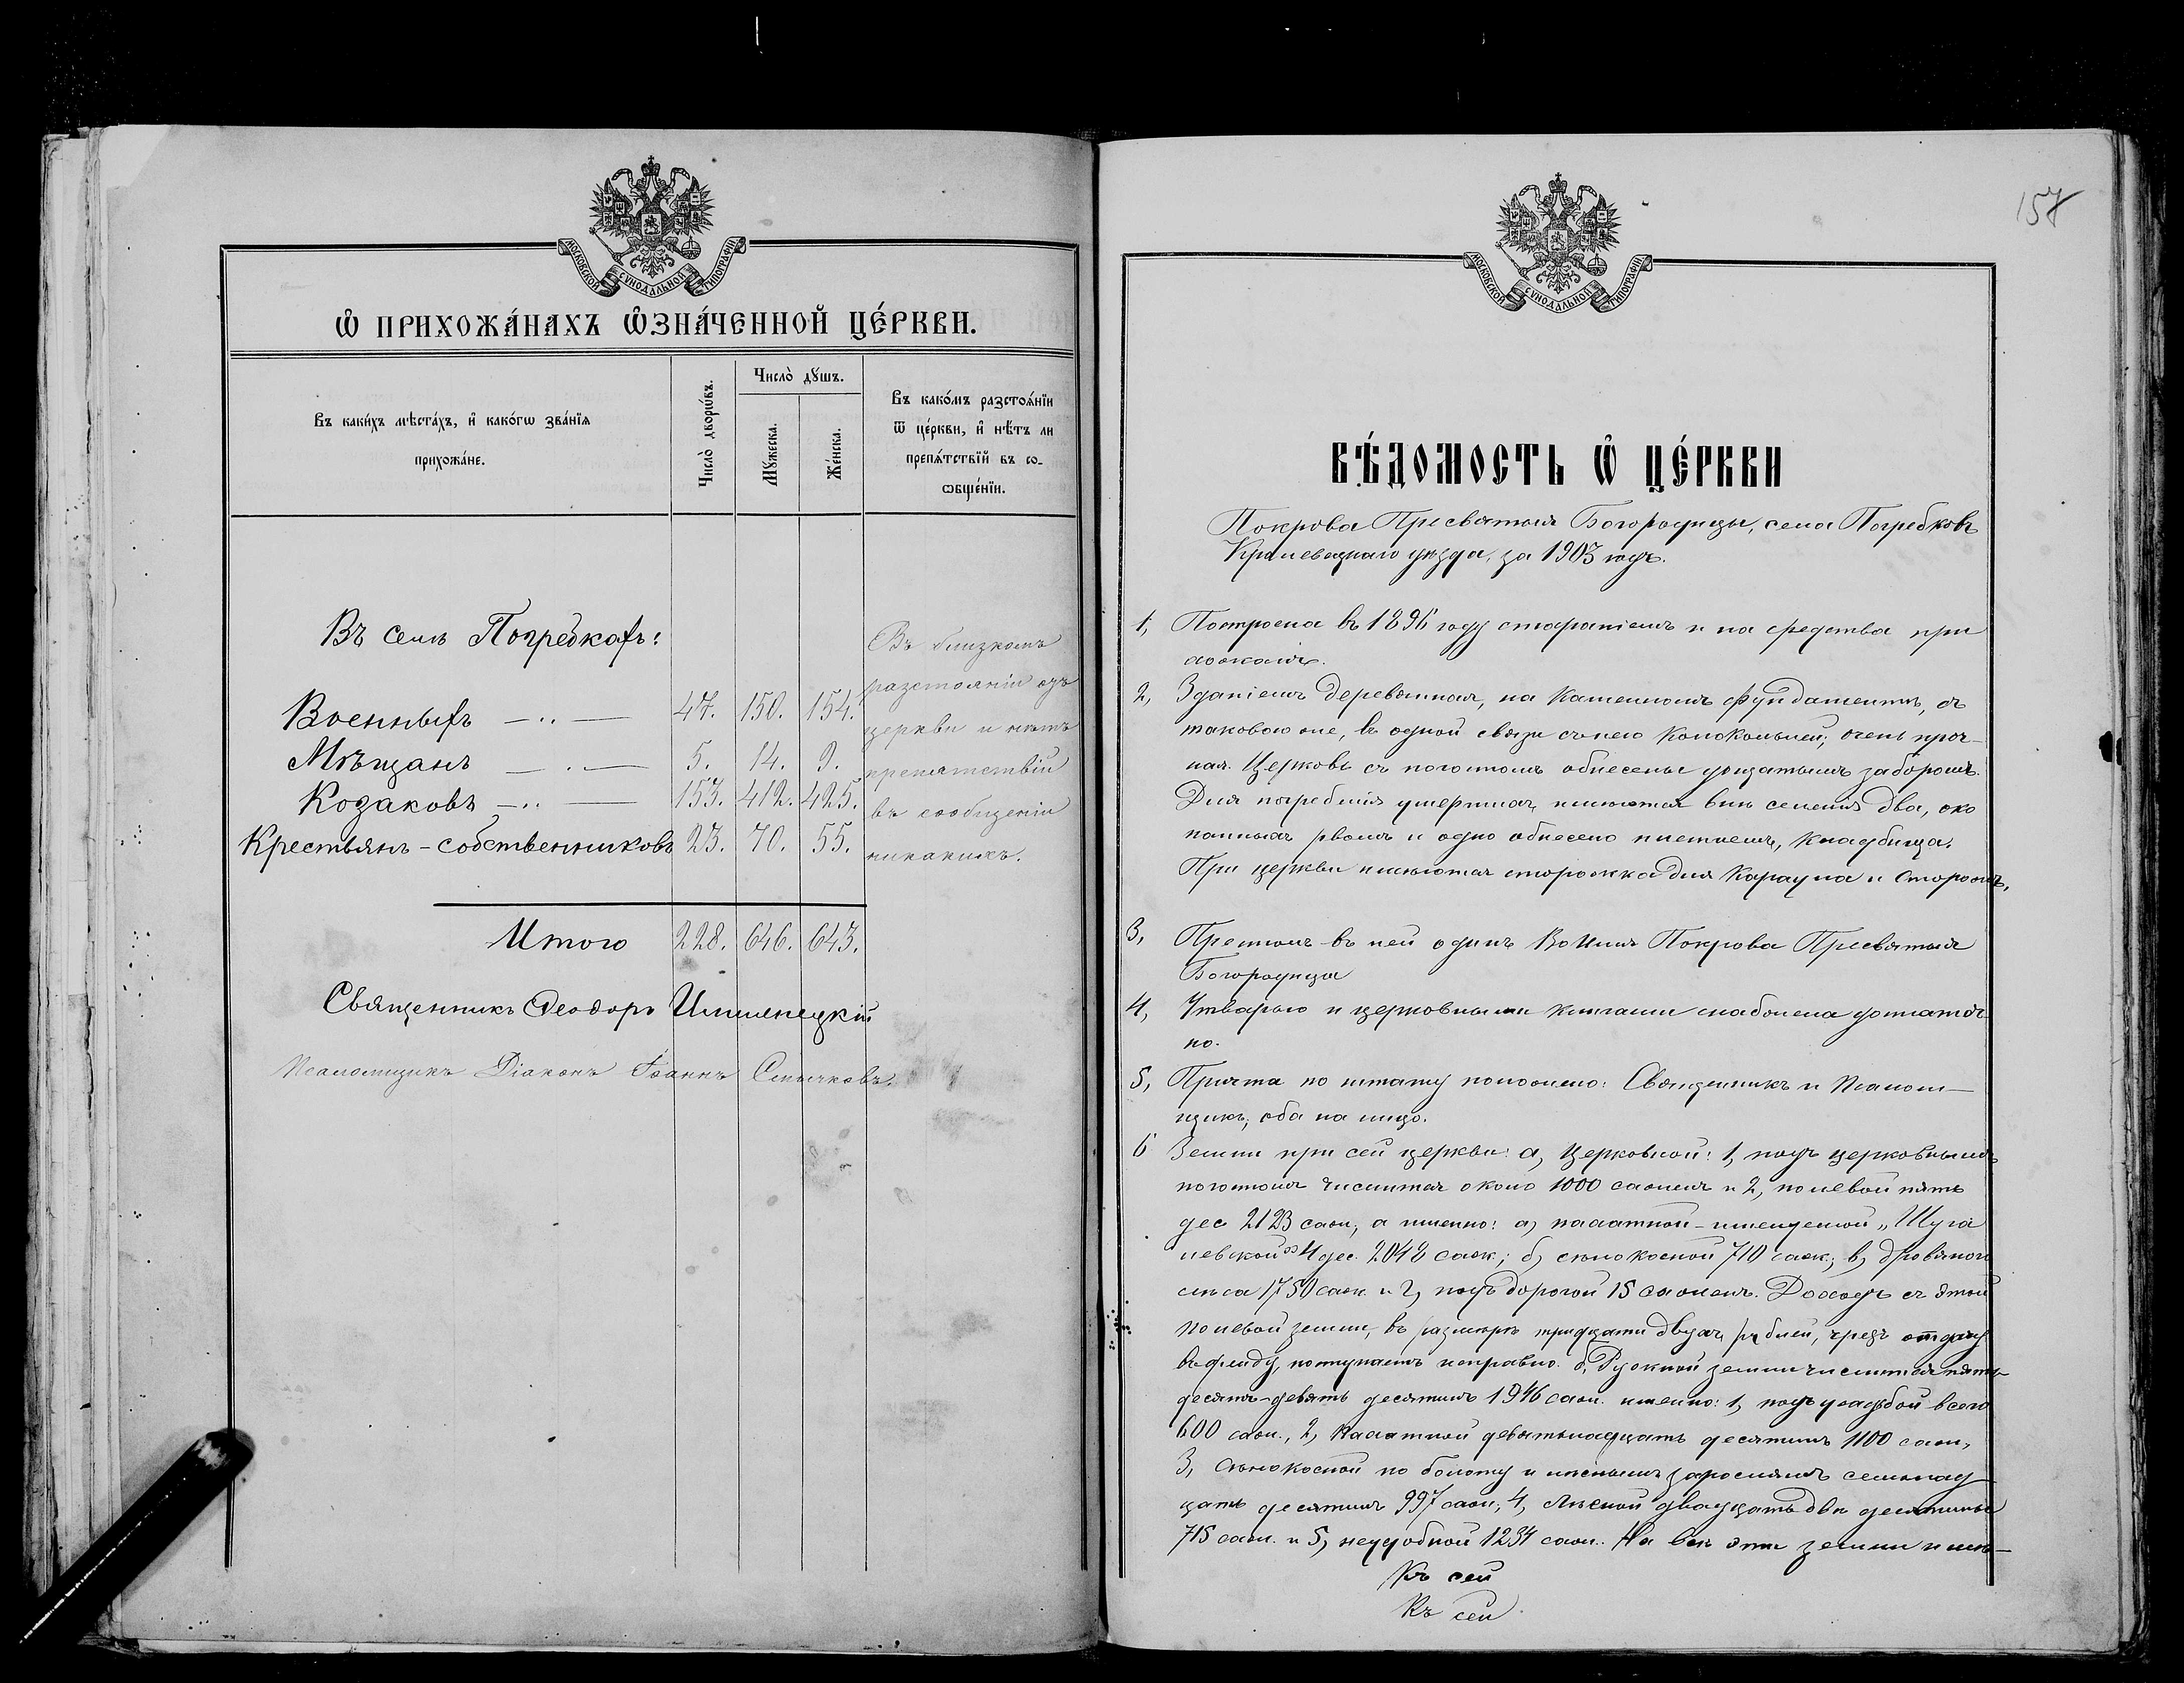 МОСКОВСКОЙ СѴНОДАЛЬНОЙ ТИПОГРАФІИ
Ѽ ПРИХОЖА́НАХЪ Ѽзна́ченной це́ркви.
Въ каки́хъ мѣста́хъ, и҆ како́гѡ зва́нїѧ
прихожа́не.
Число̀ дворѡ́въ.
Число̀ дꙋшъ.
Мꙋ́жеска.
Же́нска.
Въ како́мъ разстоѧ́нїи
ѿ це́ркви, и҆ нѣ́тъ ли
препѧ́тствїй въ со-
ѡбще́нїи.
Въ селѣ Погребкахъ:
Военныхъ — .. — 47. 150. 154.
Мѣщанъ — . — 5. 14. 9.
Козаковъ — .. — 153. 412. 425.
Крестьянъ-собственниковъ 23. 70. 55.
Въ близкомъ
разстояніи отъ
церкви и нѣтъ
препятствій
въ сообщеніи
никакихъ.
Итого 228. 646. 643.
Священникъ Ѳеодоръ Имшенецкій
Псаломщикъ Діаконъ Іоаннъ Смычковъ.
157
МОСКОВСКОЙ СѴНОДАЛЬНОЙ ТИПОГРАФІИ
ВѢ́ДОМОСТЬ Ѽ ЦЕ́РКВИ
Покрова Пресвятыя Богородицы, села Погребковъ
Кролевецкаго уѣзда, за 1903 годъ.
1, Построена въ 1896 году стараніемъ и на средства при
хожанъ.
2, Зданіемъ деревянная, на каменномъ фундаментѣ, съ
таковою же, въ одной связи съ нею колокольней; очень проч-
ная. Церковь съ погостомъ обнесены дощатымъ заборомъ.
Для погребенія умершихъ имѣются внѣ селенія два, око
панныхъ рвомъ и одно обнесено плетнемъ, кладбища.
При церкви имѣются сторожка для караула и сторожъ,
3, Престолъ въ ней одинъ во имя Покрова Пресвятыя
Богородицы
4, Утварью и церковными книгами снабжена достаточ
но.
5, Причта по штату положено: Священникъ и Псалом-
щикъ; оба на лицо.
6 Земли при сей церкви: а, церковной: 1, подъ церковнымъ
погостомъ числится около 1000 сажень и 2, полевой пять
дес 2123 саж; а именно: а) пахатной - именуемой „Шуга
левской“ 4 дес. 2048 саж; б) сѣнокосной 710 саж; в, дровяного
лѣса 1750 саж. и г, подъ дорогой 15 сажень. Доходъ съ этой
полевой земли, въ размѣрѣ тридцати двухъ рублей, чрезъ отдачу
въ аренду, поступаетъ исправно. б, Ружной земли числится пять-
десятъ-девять десятинъ 1946 саж. именно: 1, подъ усадьбой всего
600 саж., 2, пахатной девятьнадцать десятинъ 1100 саж,
3, сѣнокосной по болоту и лѣснымъ зарослямъ семьнад
цать десятинъ 997 саж; 4, лѣсной двадцать двѣ десятины
715 саж. и 5, неудобной 1234 саж.. На всѣ эти земли имѣ-
Къ сей
Къ сей